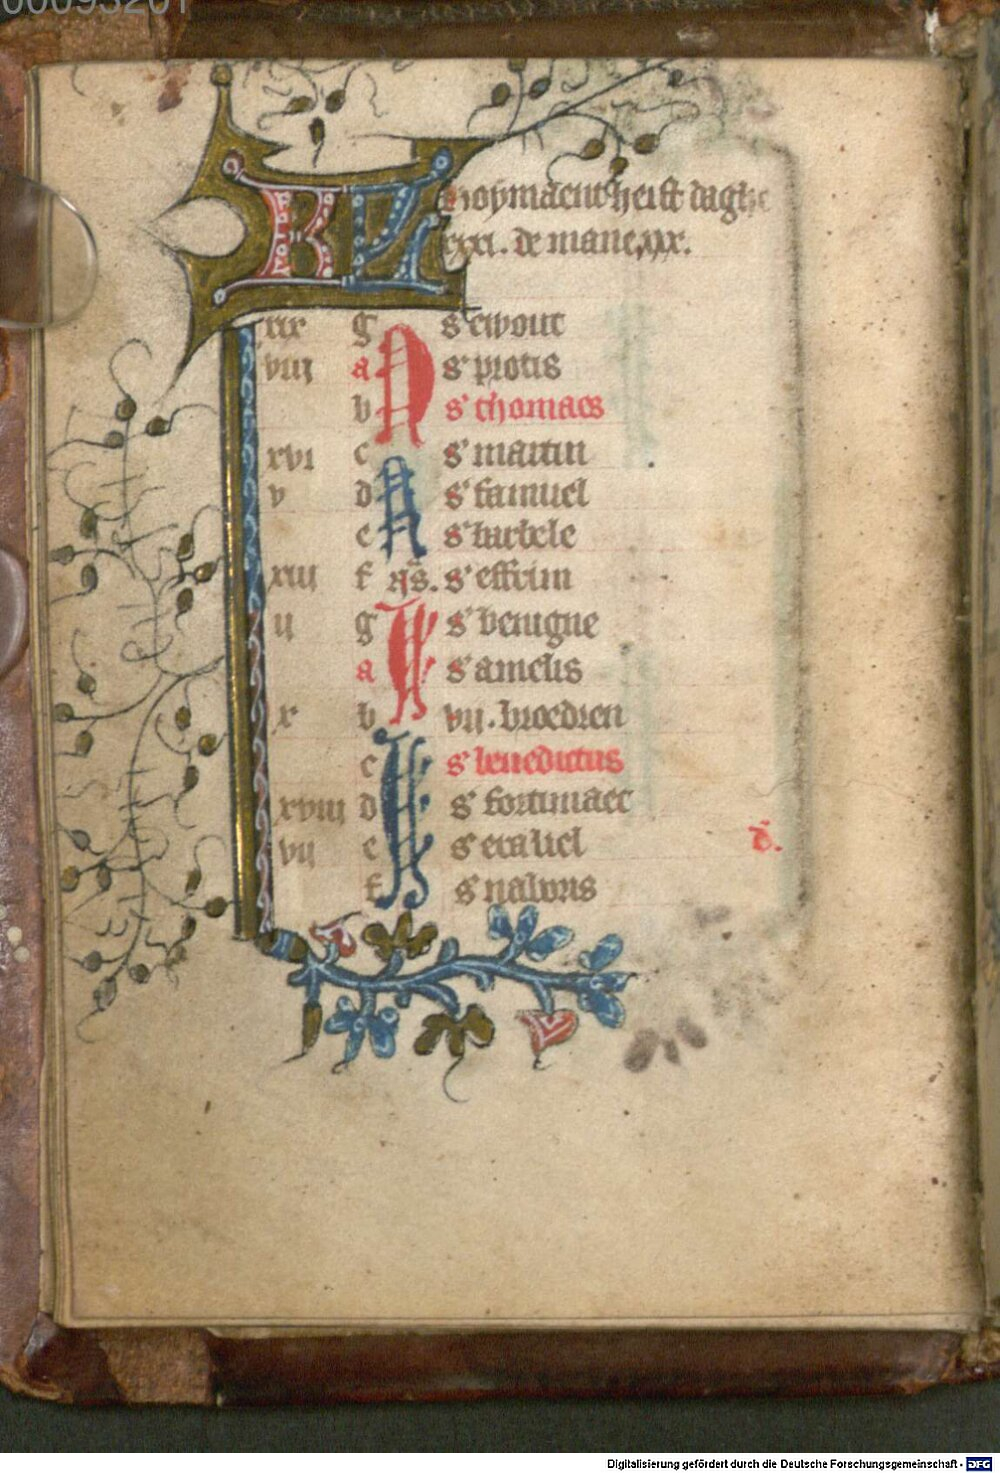 KL hoymaent heift daghe
xxxi. de mane xxx.
xix g N s' ewout
viii a s' protis
b s' thomaes
xvi c s' martin
v d A s' samuel
e s' turbele
xiii f ijs. s' effrim
ii g s' benigne
a s' amelis
x b vii. broedren
c s' benedictus
xviii d s' fortunaet
vii e s' eraliel
f s' nabons
d.
Digitalisierung gefördert durch die Deutsche Forschungsgemeinschaft - DFG